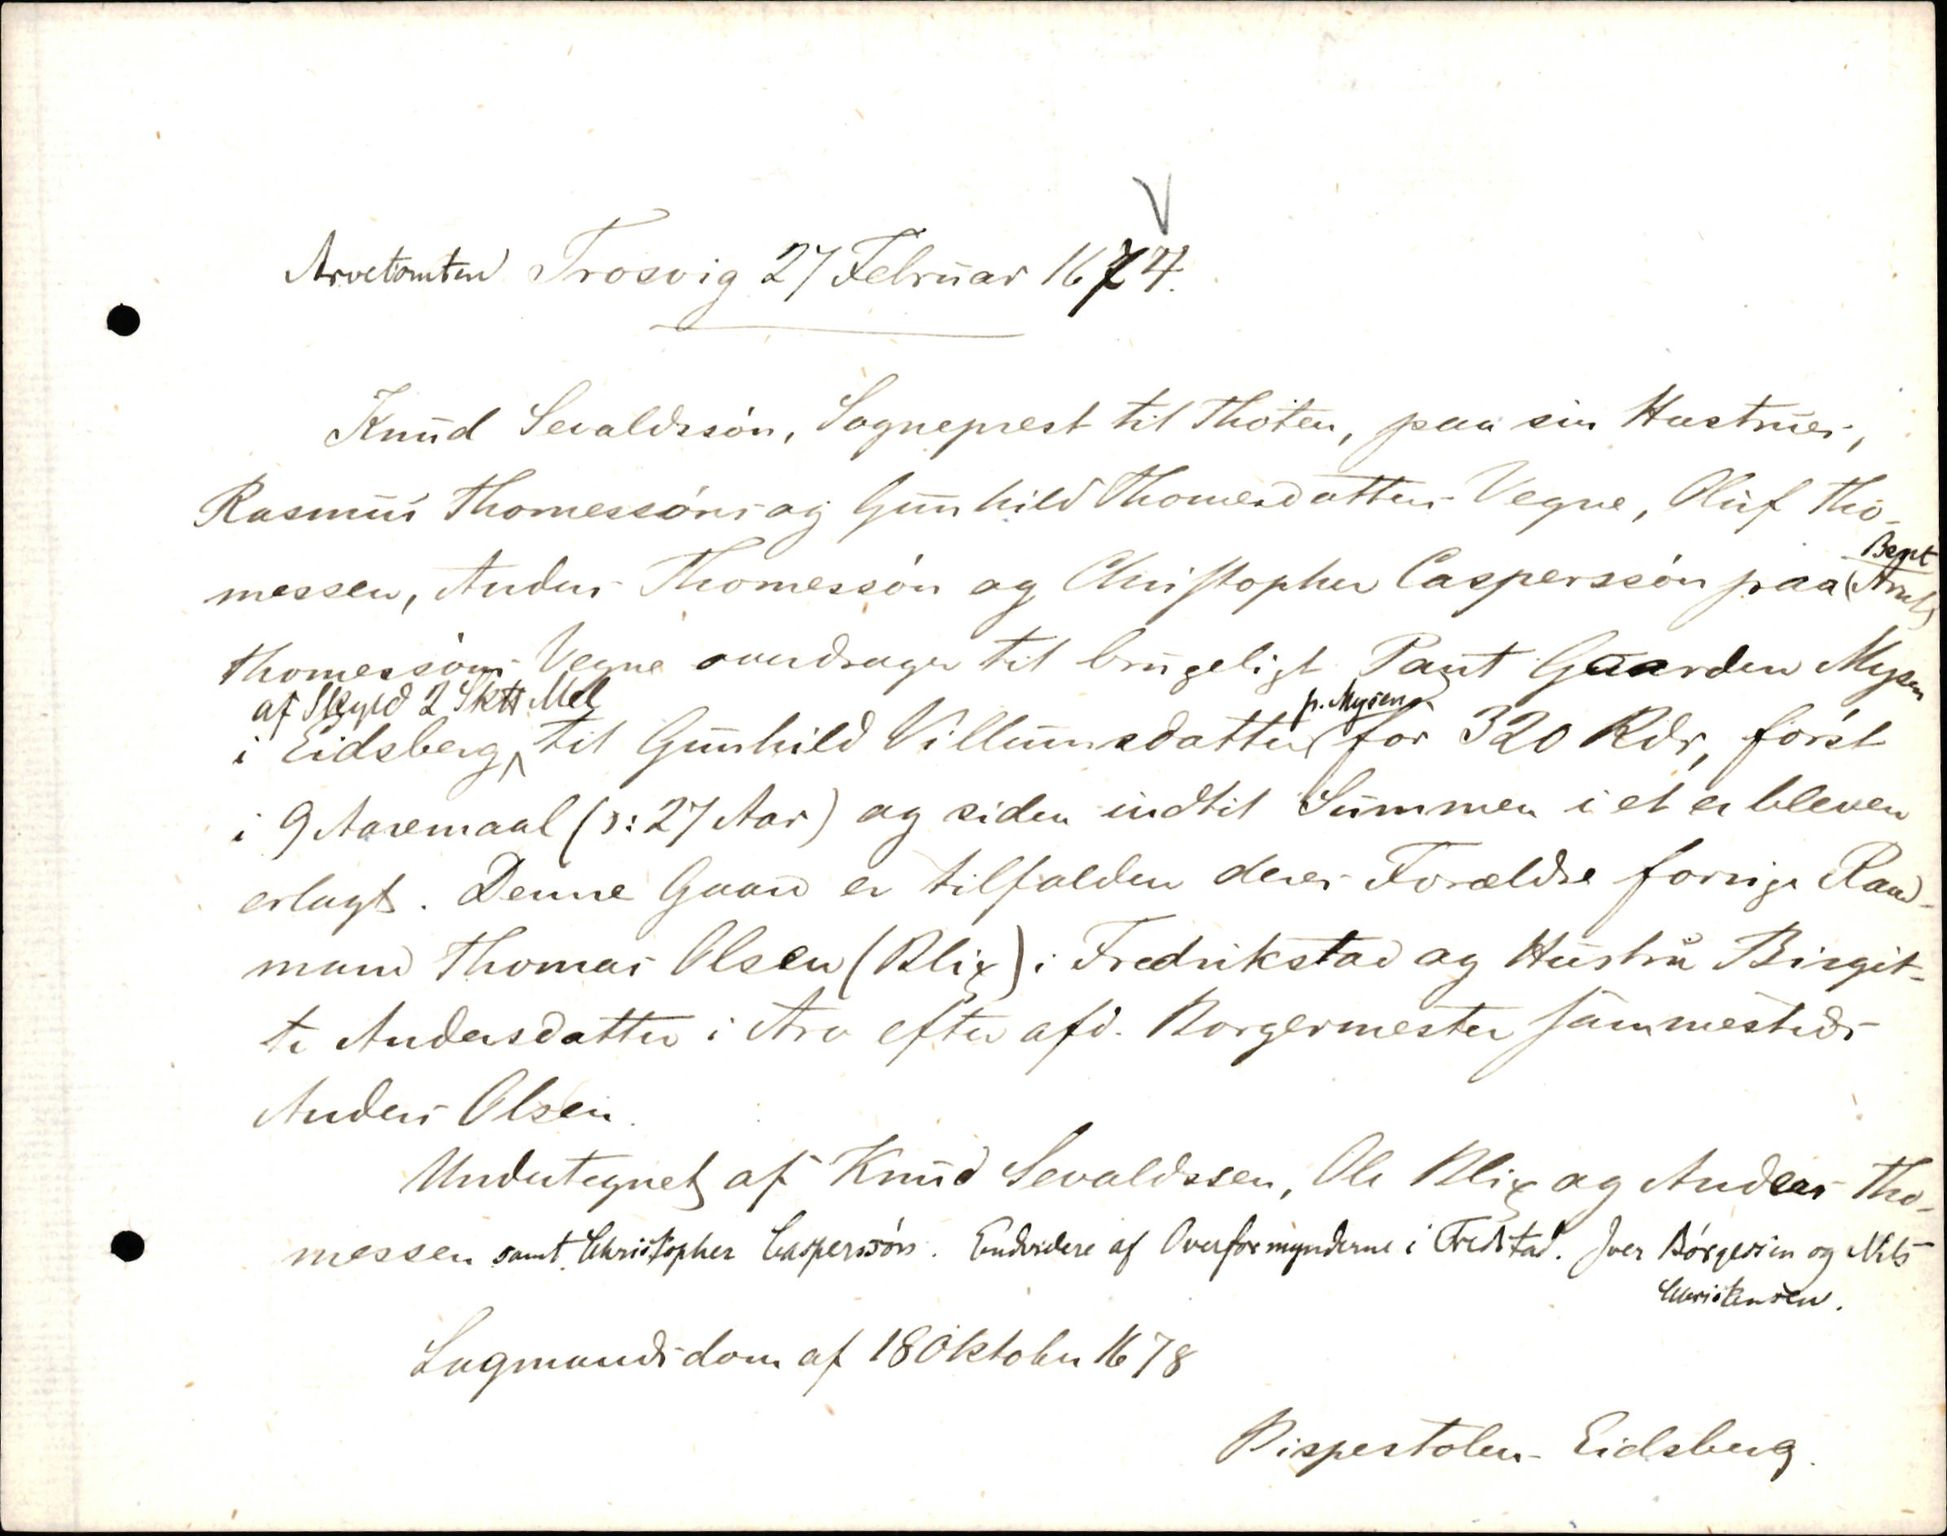 Arvetomten Trosvig 27 Februar 1674.
Knud Sevaldssön, Sogneprest til Thoten, paa sin Hustrues,
Rasmus Thomessöns og Gunhild Thomesdatters Vegne, Oluf Tho-
messen, Anders Thomessön og Christopher Casperssön paa (Arnt)
Bent
Thomessöns Vegne overdrager til brugeligt Pant Gaarden Mysen
af Skyld 2 Sk℔ Mel
p. Mysen
i Eidsberg, til Gunhild Villumsdatter for 320 Rdr, först
i 9 Aaremaal (ɔ: 27 Aar) og siden indtil Summen i et er bleven
erlagt. Denne Gaard er tilfalden deres Forældre forrige Raad-
mand Thomas Olsen (Blix) i Fredrikstad og Hustru Birgit-
te Andersdatter i Arv efter afd. Borgermester sammesteds
Anders Olsen.
Undertegnet af Knud Sevaldssen, Ole Blix og Anders Tho-
messen samt Christopher Casperssön. Endvidere af Overformynderne i Fredstad. Iver Börgersen og Nils
Christensen.
Lagmandsdom af 18 Oktober 1678
Bispestolen - Eidsberg.